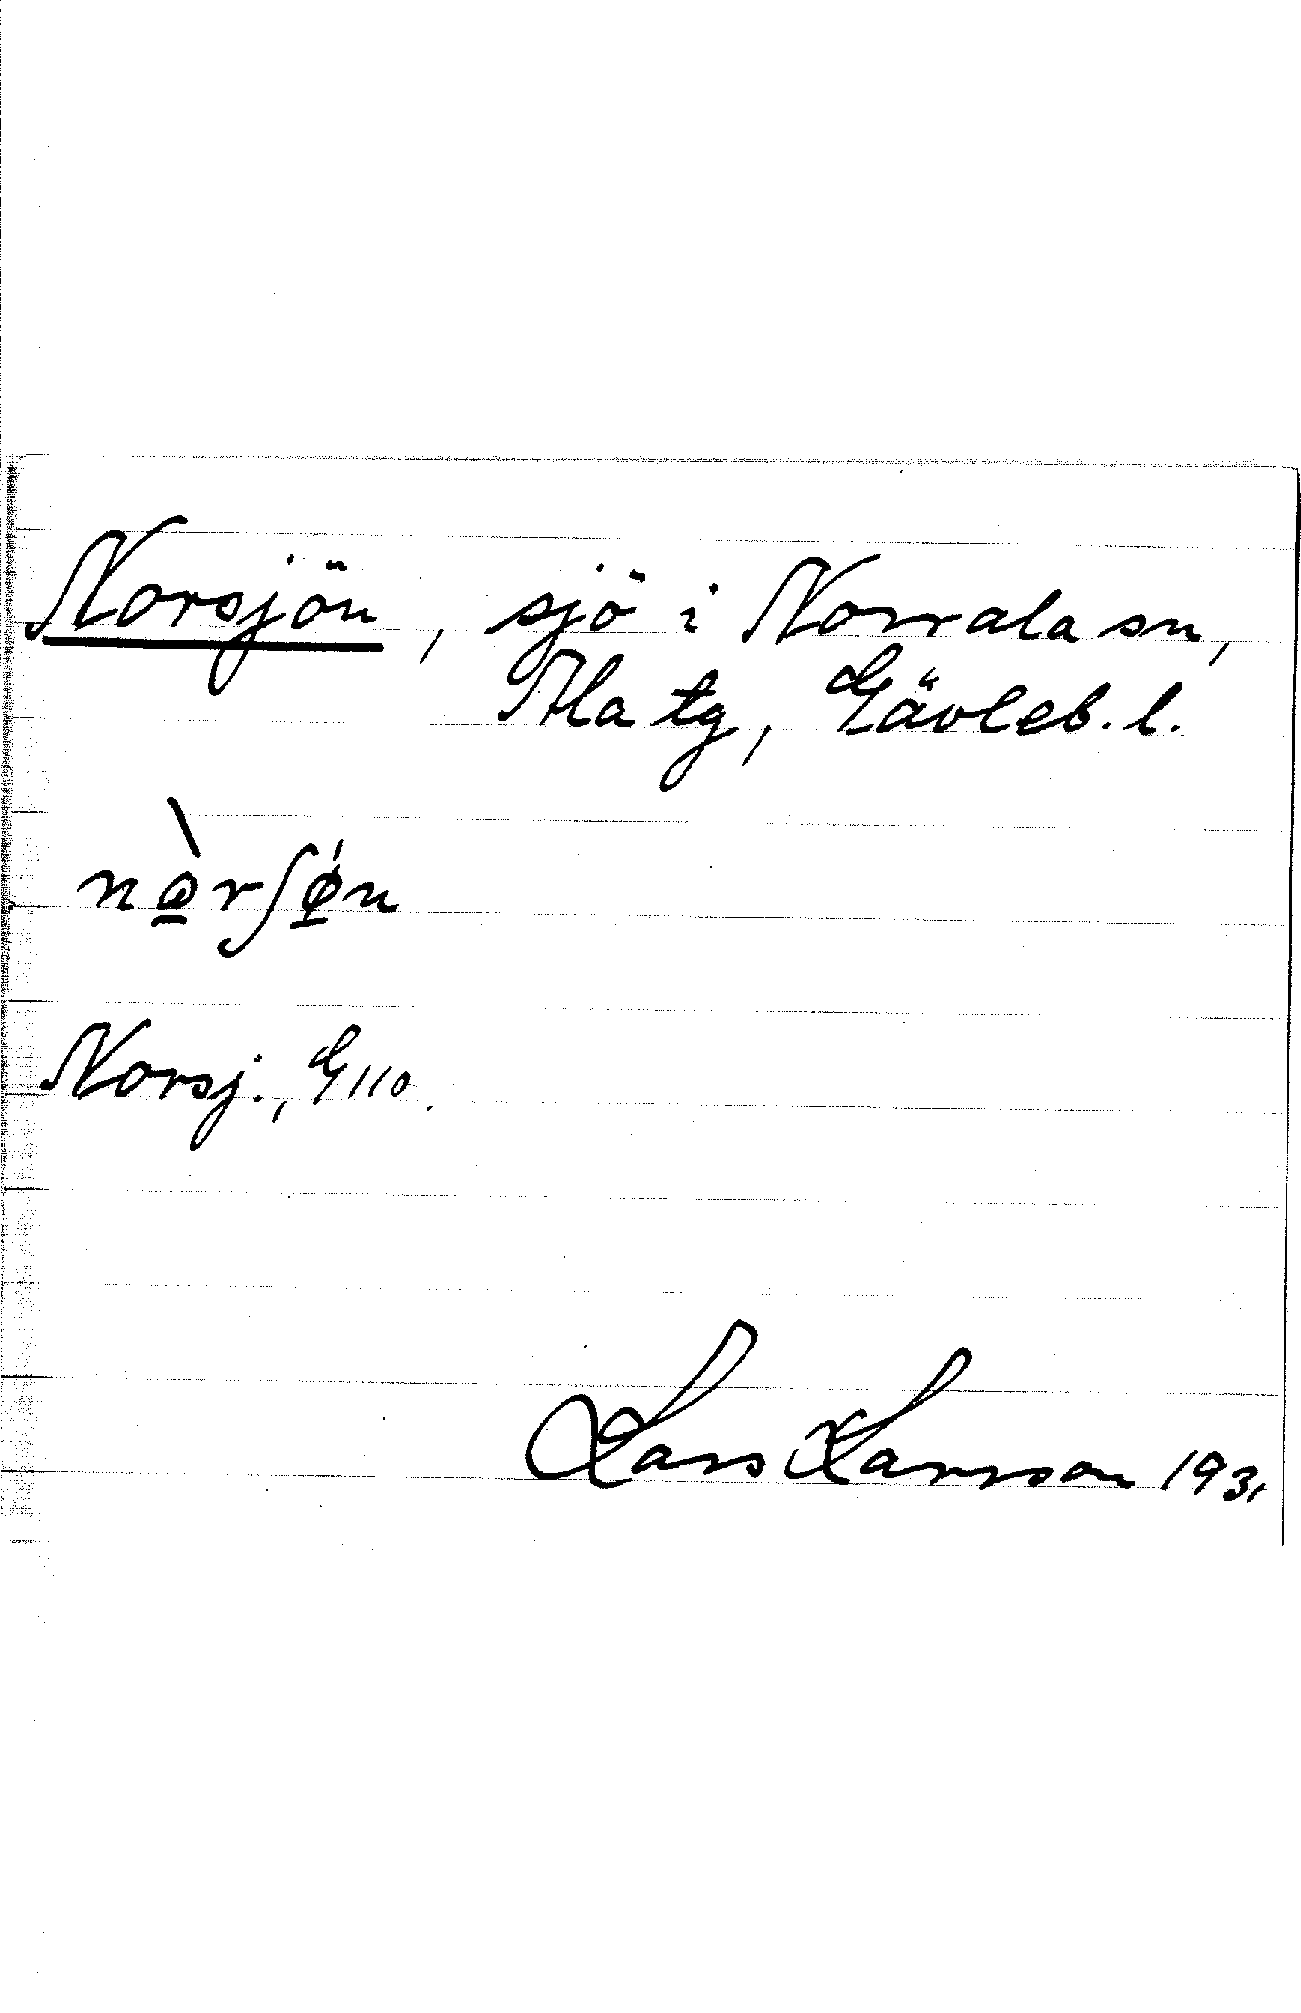 Norsjön, sjö i Norrala sn,
Ala tg, Gävleb. l.
nò̱rʃǿ̱n
Norsj., G 110.
Lars Larsson 1931